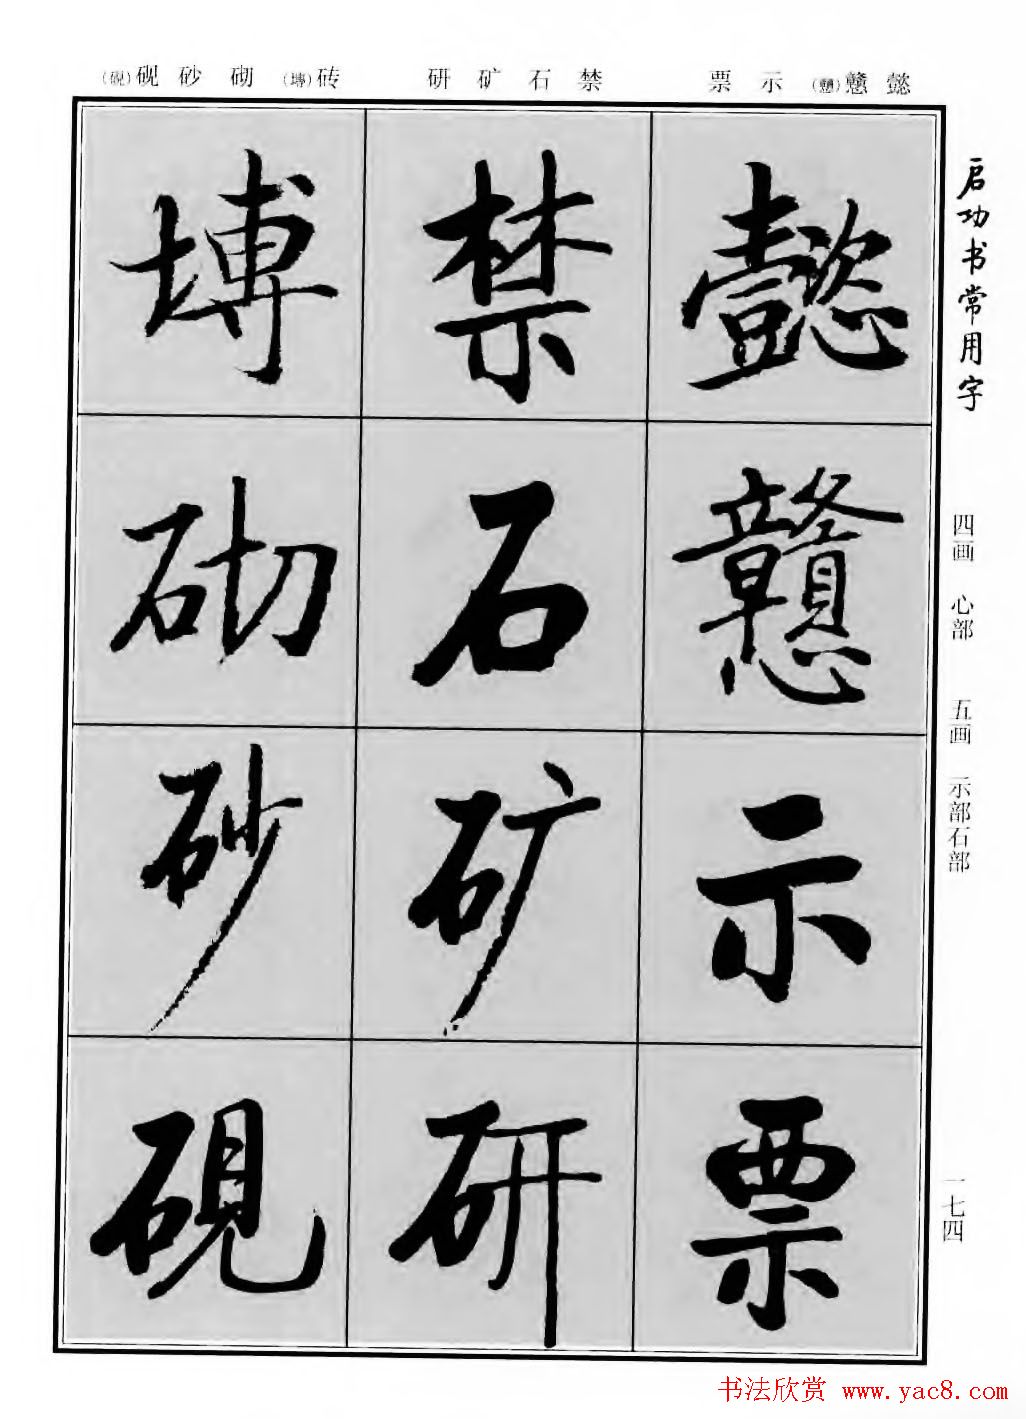 懿戆(戇)示票
禁石矿研
砖(塼)砌砂砚(硯)
启功书常用字
四画 心部 五画 示部石部
一七四
懿戇示票
禁石矿研
塼砌砂硯
书法欣赏 www.yac8.com